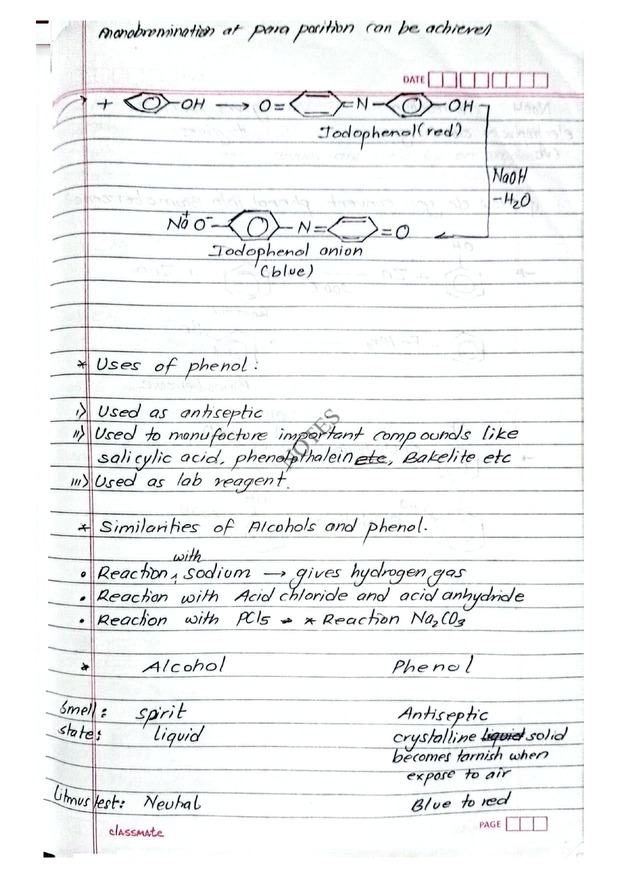 monobromination at para position can be achieved
DATE
+ -OH → O= =N- -OH
Iodophenol (red)
NaOH
-H₂O
Na⁺O⁻- -N= =O
Iodophenol anion
(blue)
* Uses of phenol :
i) Used as antiseptic
ii) Used to manufacture important compounds like
salicylic acid, phenolpthalein etc, Bakelite etc
iii) Used as lab reagent.
NOTES
* Similarities of Alcohols and phenol.
• Reaction with sodium → gives hydrogen gas
• Reaction with Acid chloride and acid anhydride
• Reaction with PCl5 * Reaction Na₂CO₃
* Alcohol Phenol
Smell: spirit Antiseptic
state: liquid crystalline liquid solid
becomes tarnish when
expose to air
Litmus test: Neutral Blue to red
classmate PAGE